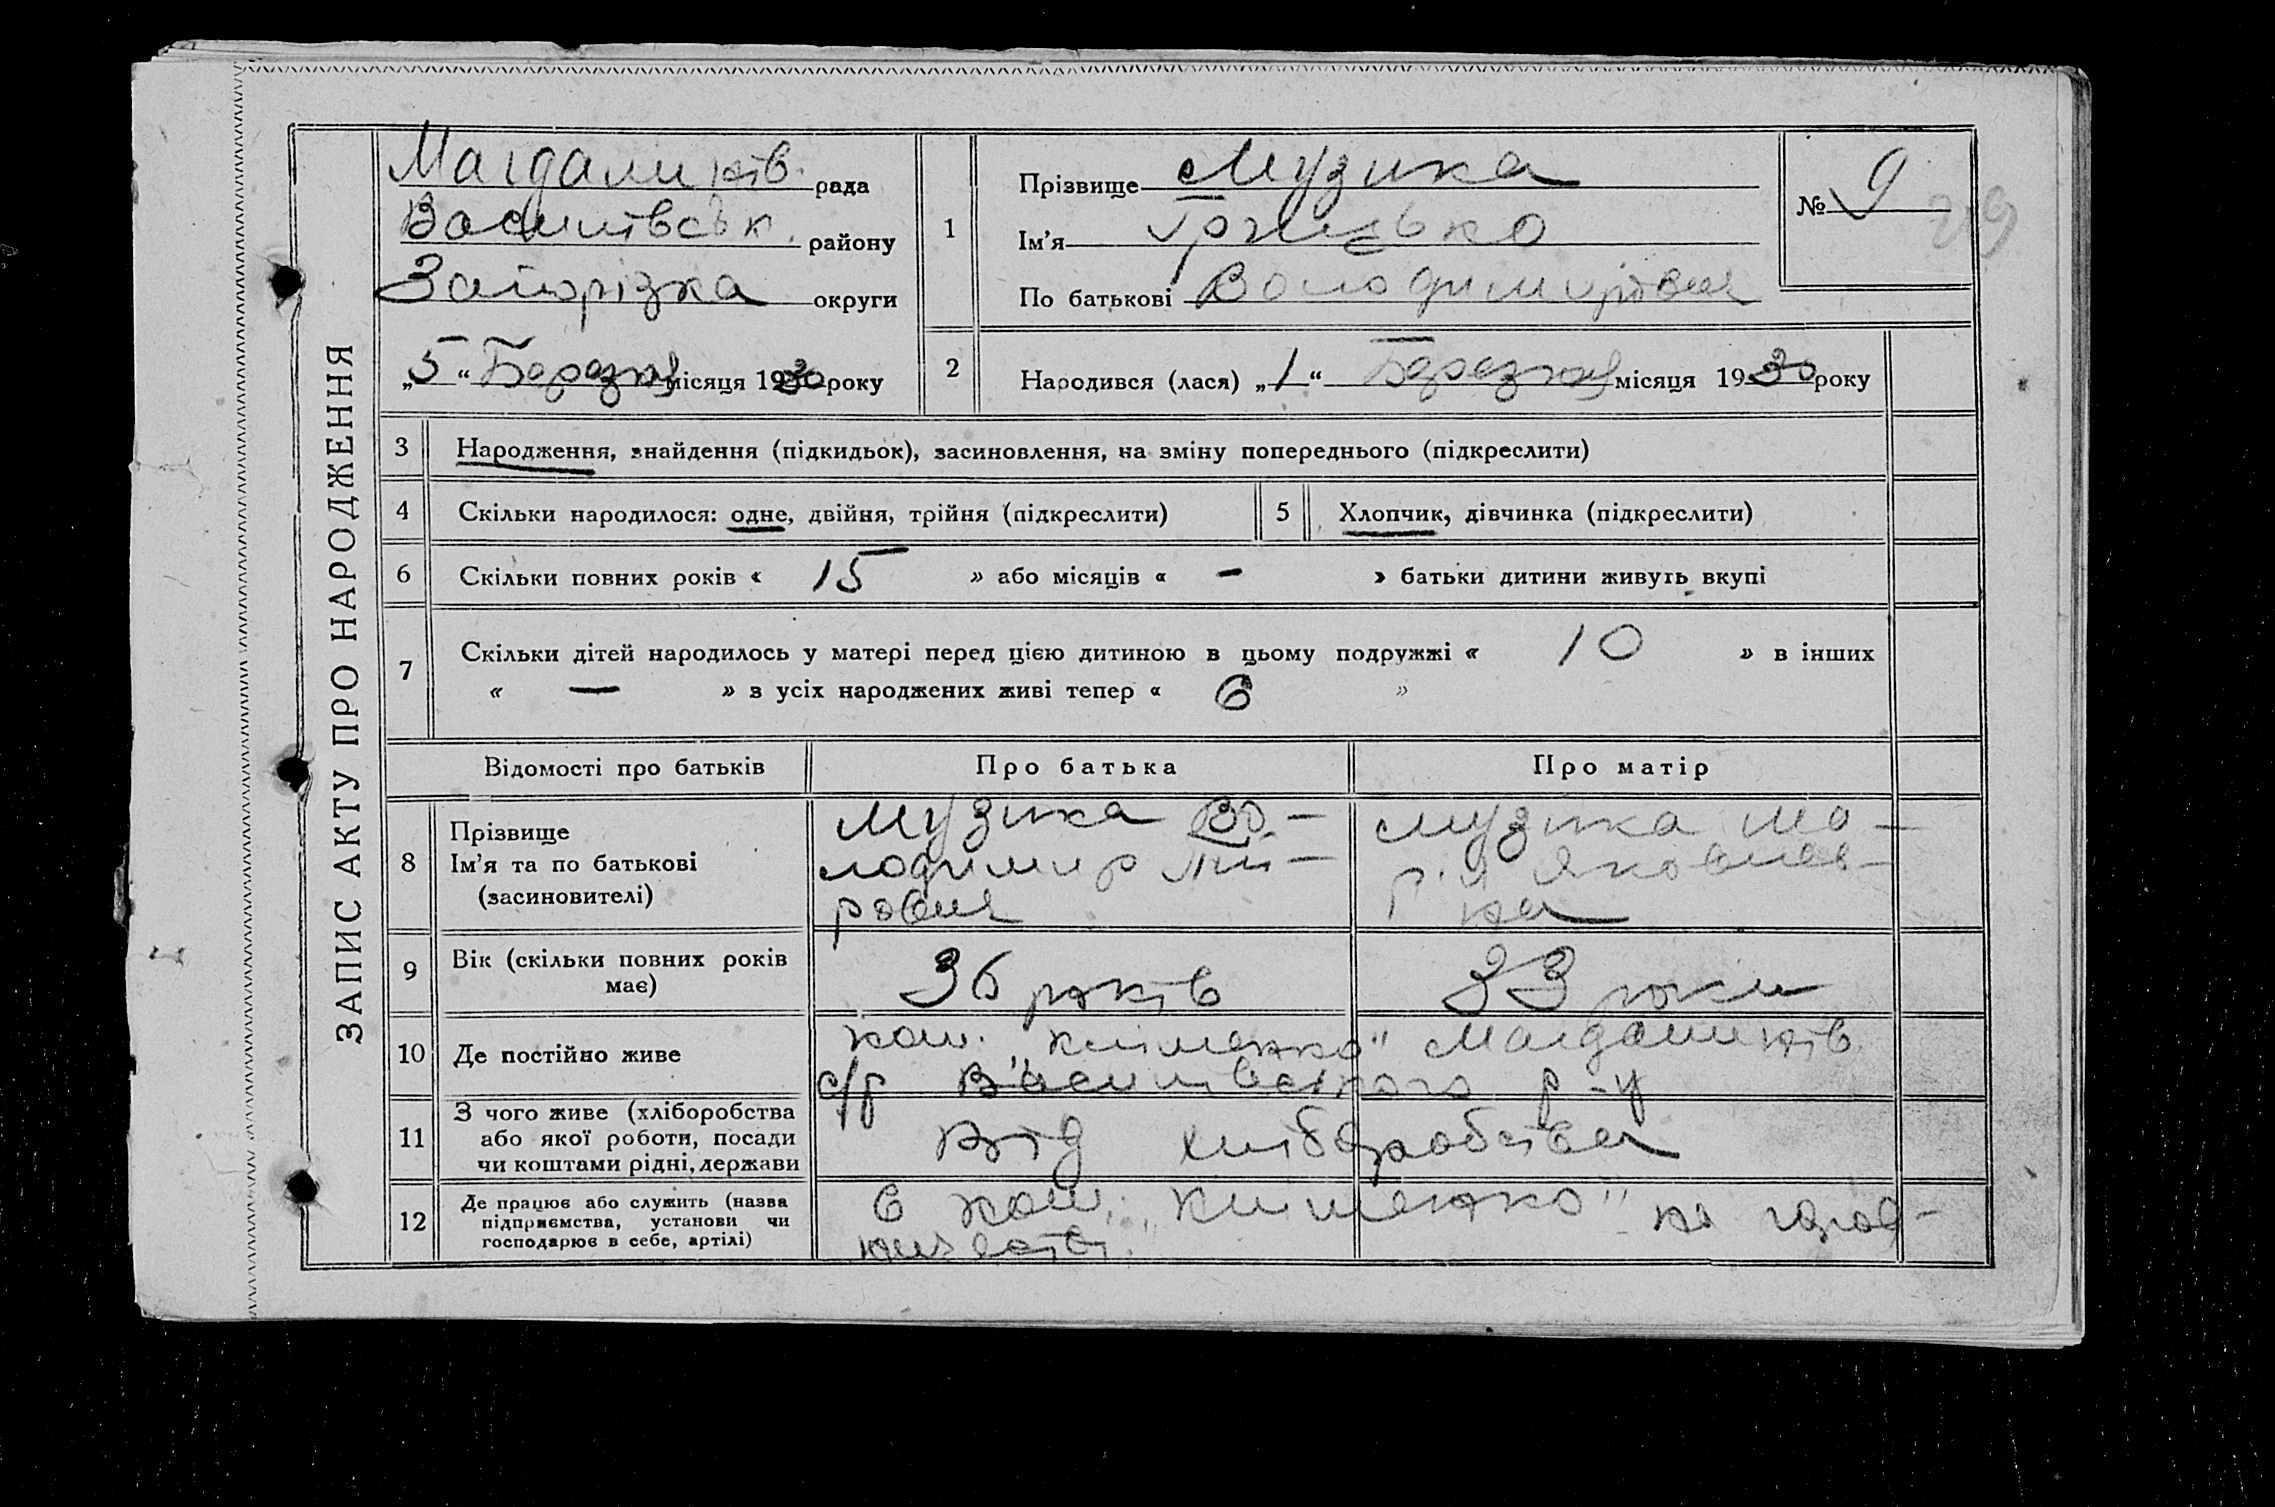 ЗАПИС АКТУ ПРО НАРОДЖЕННЯ
Магдалинів. рада
Василівськ. району
Запорізка округи
„5“ Березня місяця 1930 року
1 Прізвище Музика
Ім'я Грицько
По батькові Володимирівич
№ 9
29
2 Народився (лася) „1“ Березня місяця 1930 року
3 Народження, знайдення (підкидьок), засиновлення, на зміну попереднього (підкреслити)
4 Скільки народилося: одне, двійня, трійня (підкреслити)
5 Хлопчик, дівчинка (підкреслити)
6 Скільки повних років « 15 » або місяців « - » батьки дитини живуть вкупі
7 Скільки дітей народилось у матері перед цією дитиною в цьому подружжі « 10 » в інших
« — » з усіх народжених живі тепер « 6 »
Відомості про батьків Про батька Про матір
8 Прізвище
Ім'я та по батькові
(засиновителі)
Музика Во-
лодимир
Музика Ма-
рія Яковлев-
на
9 Вік (скільки повних років
має)
36 років
33 роки
10 Де постійно живе
ком. „Кліменко" Магдалинів.
с/р Василівського р-у
11 З чого живе (хліборобства
або якої роботи, посади
чи коштами рідні, держави
Від хліборобства
12 Де працює або служить (назва
підприємства, установи чи
господарює в себе, артілі)
в ком. „Клименко"